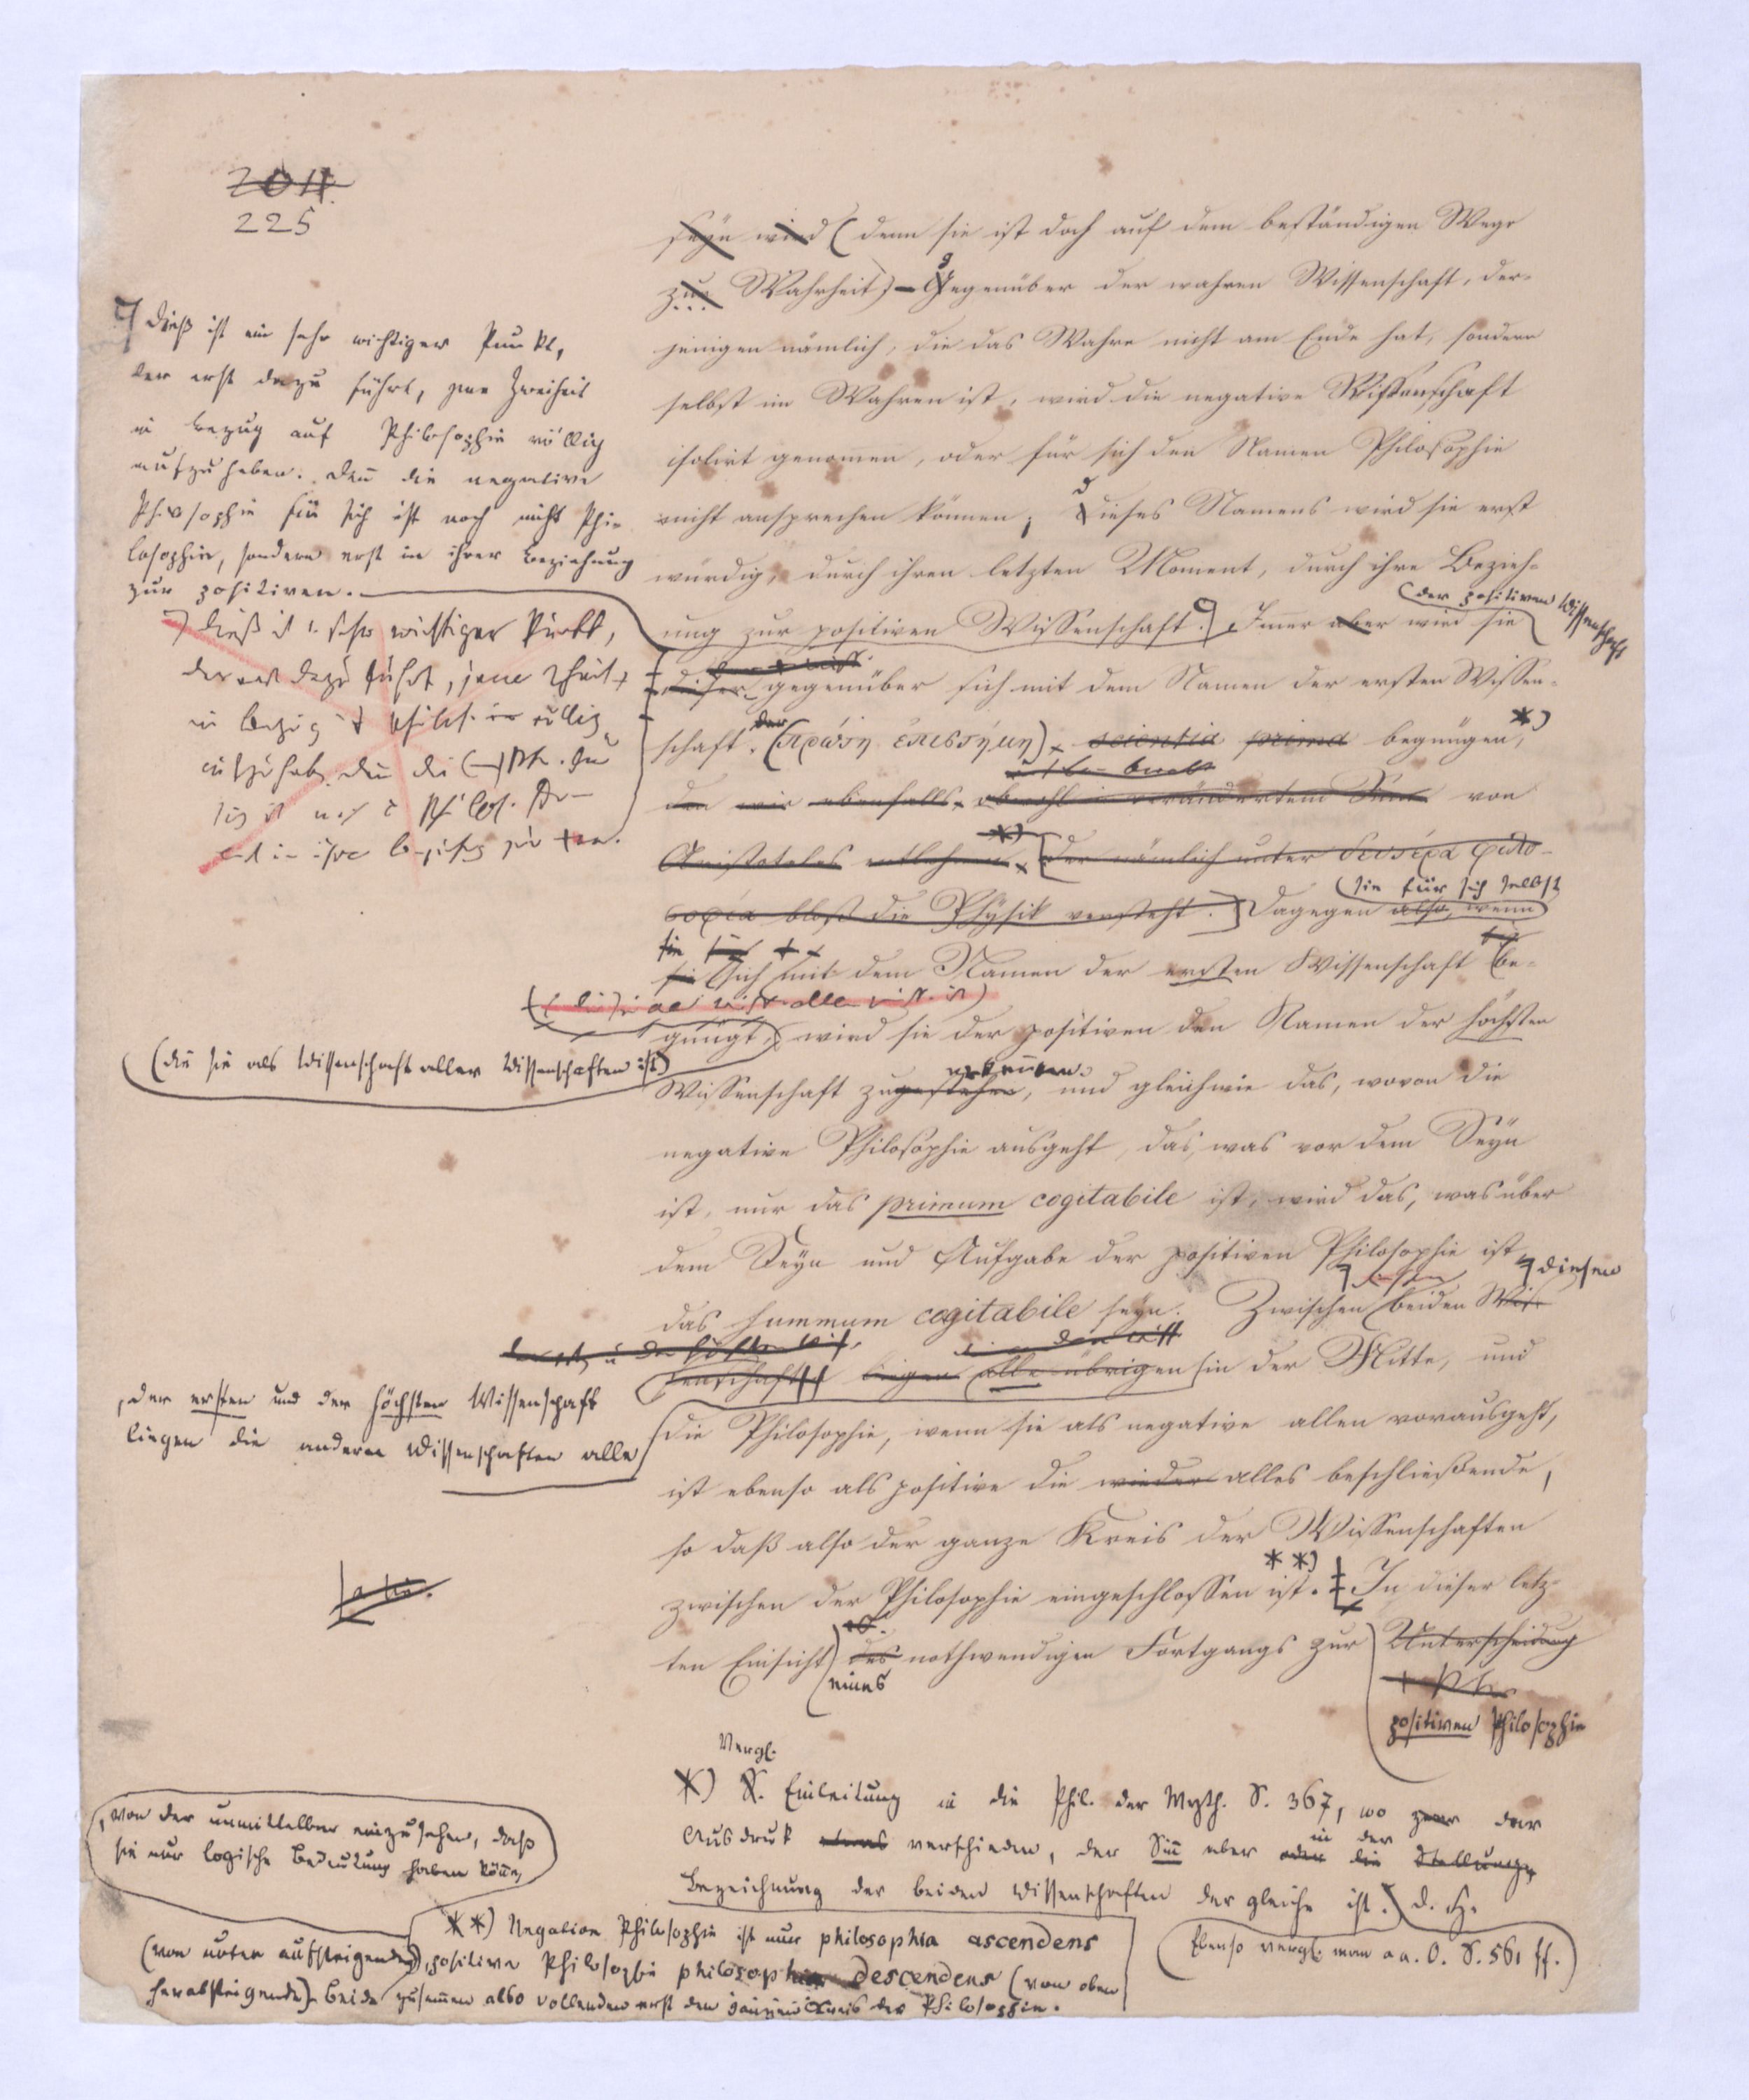 204.
225
seyn wird (denn sie ist doch auf dem beständigen Wege
zur Wahrheit) – gegenüber der wahren Wissenschaft, der-
jenigen nämlich, die das Wahre nicht am Ende hat, sondern
selbst im Wahren ist, wird die negative Wissenschaft
isolirt genomen, oder für sich den Namen Philosophie
nicht ansprechen können; dieses Namens wird sie erst
würdig, durch ihren letzten Moment, durch ihre Bezieh-
ung zur positiven Wissenschaft. Immer aber wird sie
(der positiven Wissenschaft
dieser gegenüber sich mit dem Namen der ersten Wissen-
schaft, der (πρώτη ἐπιστήμη) scientia prima begnügen, *)
den wir ebenfalls, obwohl in verändertem Sinn von
Aristoteles entlehnen *) [der nämlich unter δευτέρα φιλο-
σοφία bloß die Physik versteht.] Dagegen also, wenn
(sie für sich selbst
sie sich mit dem Namen der ersten Wissenschaft be-
gnügt, wird sie der positiven den Namen der höchsten
Wissenschaft zugestehen, und gleichwie das, wovon die
erkennen
negative Philosophie ausgeht, das, was vor dem Seyn
ist, nur das primum cogitabile ist, wird das, was über
dem Seyn und Aufgabe der positiven Philosophie ist,
das summum cogitabile seyn. Zwischen beiden Wis-
diesen
senschaften liegen alle übrigen in der Mitte, und
die Philosophie, wenn sie als negative allen vorausgeht,
ist ebenso als positive die wieder alles beschließende,
so daß also der ganze Kreis der Wissenschaften
zwischen der Philosophie eingeschlossen ist. **) In dieser letz-
ten Einsicht des nothwendigen Fortgangs zur Unterscheidung
eines
positiven Philosophie
Dieß ist ein sehr wichtiger Punkt,
der erst dazu führt, jene Zweiheit
in Bezug auf Philosophie völlig
aufzuheben. Denn die negative
Philosophie für sich ist noch nicht Phi-
losophie, sondern erst in ihrer Beziehung
zur positiven.
wichtiger Punkt,
dazu führt, jene
(die sie als Wissenschaft aller Wissenschaften ist)
, der ersten und der höchsten Wissenschaft
liegen die anderen Wissenschaften alle
Vergl.
*) S. Einleitung in die Phil. der Myth. S. 367, wo zwar der
Ausdruk etwas verschieden, der Sinn aber oder die Stellung
in der
Bezeichnung der beiden Wissenschaften der gleiche ist. D. H.
Ebenso vergl. man a. a. O. S. 561 ff.)
, von der unmittelbar einzusehen, daß
sie nur logische Bedeutung haben könne,
**) Negative Philosophie ist nur philosophia ascendens
(von unten aufsteigende), positive Philosophie philosophia descendens (von oben
herabsteigende). Beide zusammen also vollenden erst den ganzen Kreis der Philosophie.